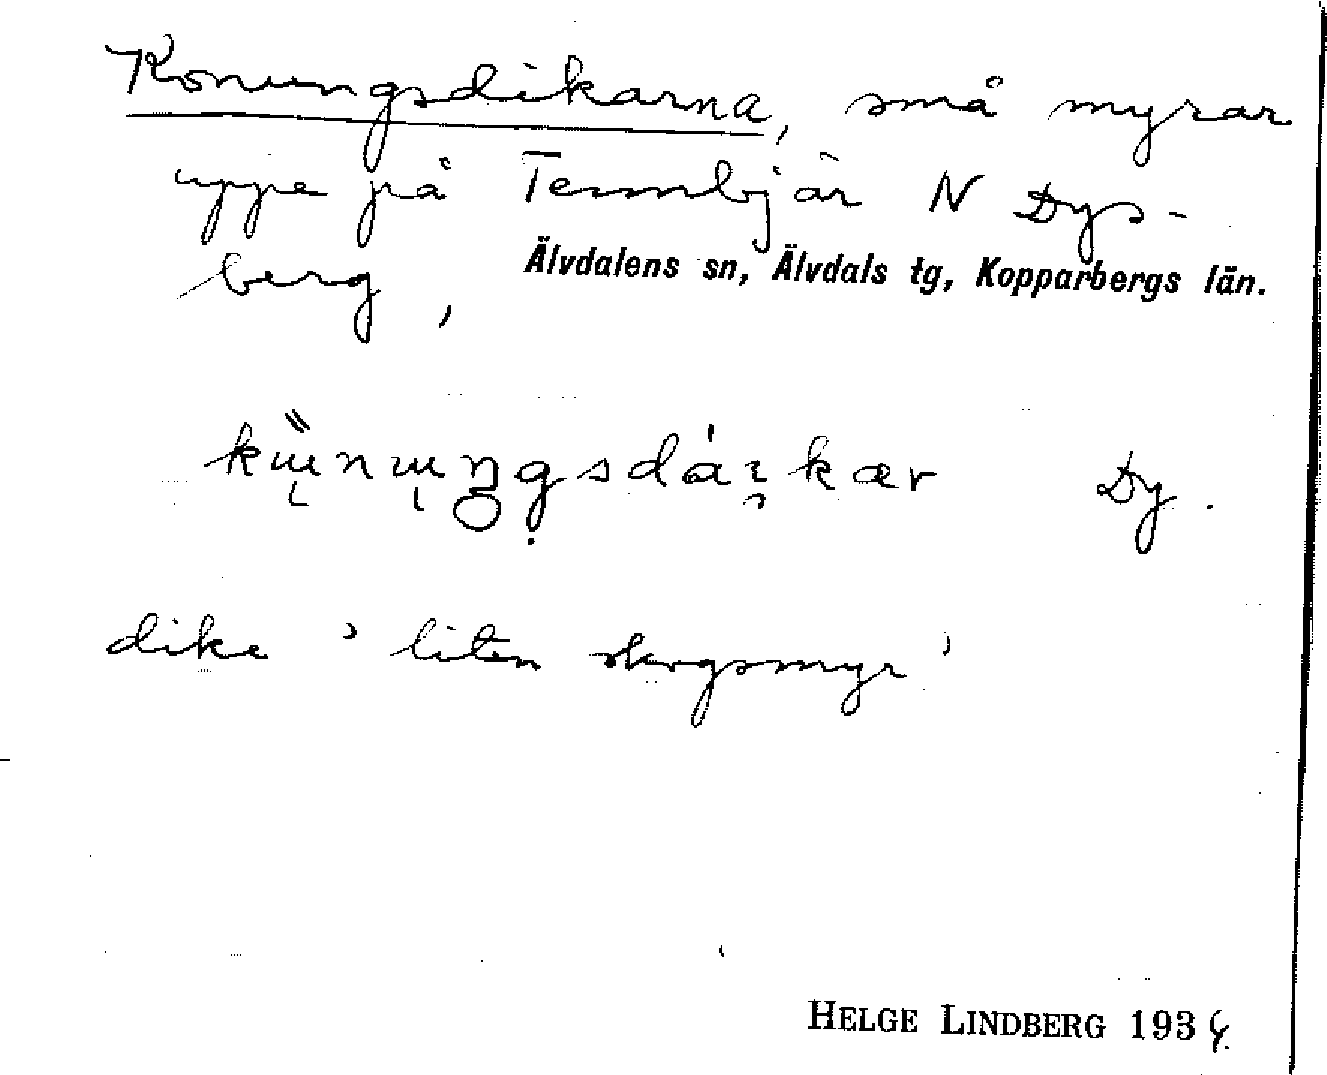 Konungsdikarna, små myrar
uppe på Tennbjär N Dys-
berg,
Älvdalens sn, Älvdals tg, Kopparbergs län.
Dy.
dike 'liten skogsmyr'
HELGE LINDBERG 1934